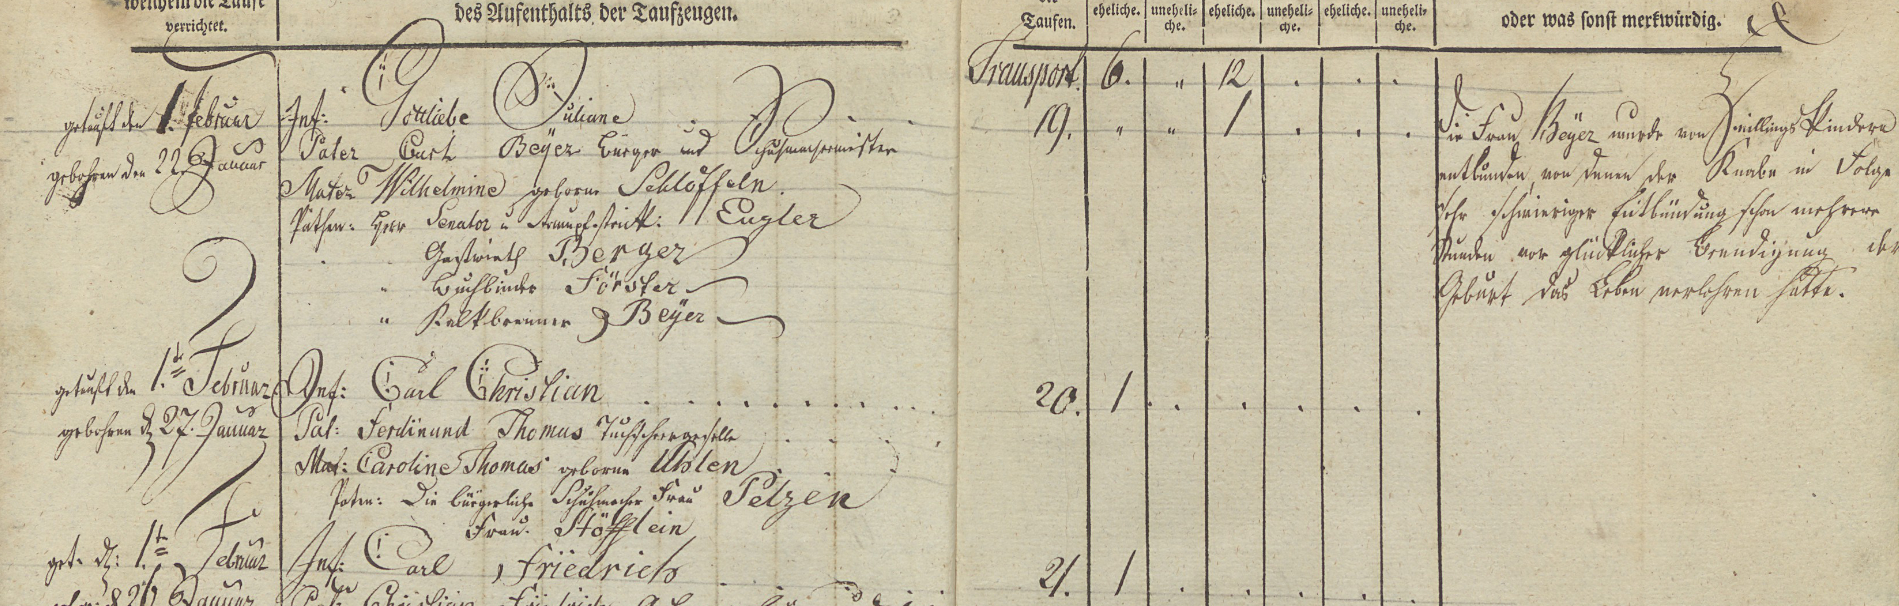 welchem die Taufe
verrichtet.
des Aufenthalts der Taufzeugen.
Taufen.
eheliche. uneheli-che. eheliche. uneheli-che. eheliche. uneheli-che.
oder was sonst merkwürdig.
Transport. 6. " 12 . . .
getauft den 1. Februar
gebohren den 22. Januar
Inf: Gottliebe Juliane
Pater Carl Beÿer Bürger und Schuhmachermeister
Mater Wilhelmine geborne Schlöffeln.
Pathen: Herr Senator u Engler
Gastwirth Berger
" Buchbinder Förster
" Kalkbrenner Beÿer
19. " " 1 . . .
Die Frau Beÿer wurde von Zwillings Kindern
entbunden, von denen der Knabe in Folge
sehr schwieriger Entbindung schon mehrere
Stunden vor glücklicher Beendigung der
Geburt das Leben verlohren hatte.
getauft den 1.te Februar
gebohren d 27. Januar
Inf: Carl Christian
Pat: Ferdinand Thomas Tuchscheergeselle
Mat: Caroline Thomas geborne Uhlen
Paten: Die bürgerliche Schuhmacher Frau Pelzen
Frau. Stöfflein
20. 1 . . . . . .
get. d: 1.te Februar
Inf: Carl Friedrich
21. 1 . . . . .
Januar
Pat: Christian